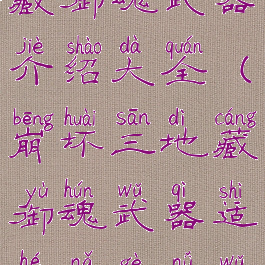 藏御魂武器
jiè shào dà quán
介绍大全（
bēng huài sān dì cáng
崩坏三地藏
yù hún wǔ qì shì
御魂武器适
hé nǎ gè nǚ wǔ